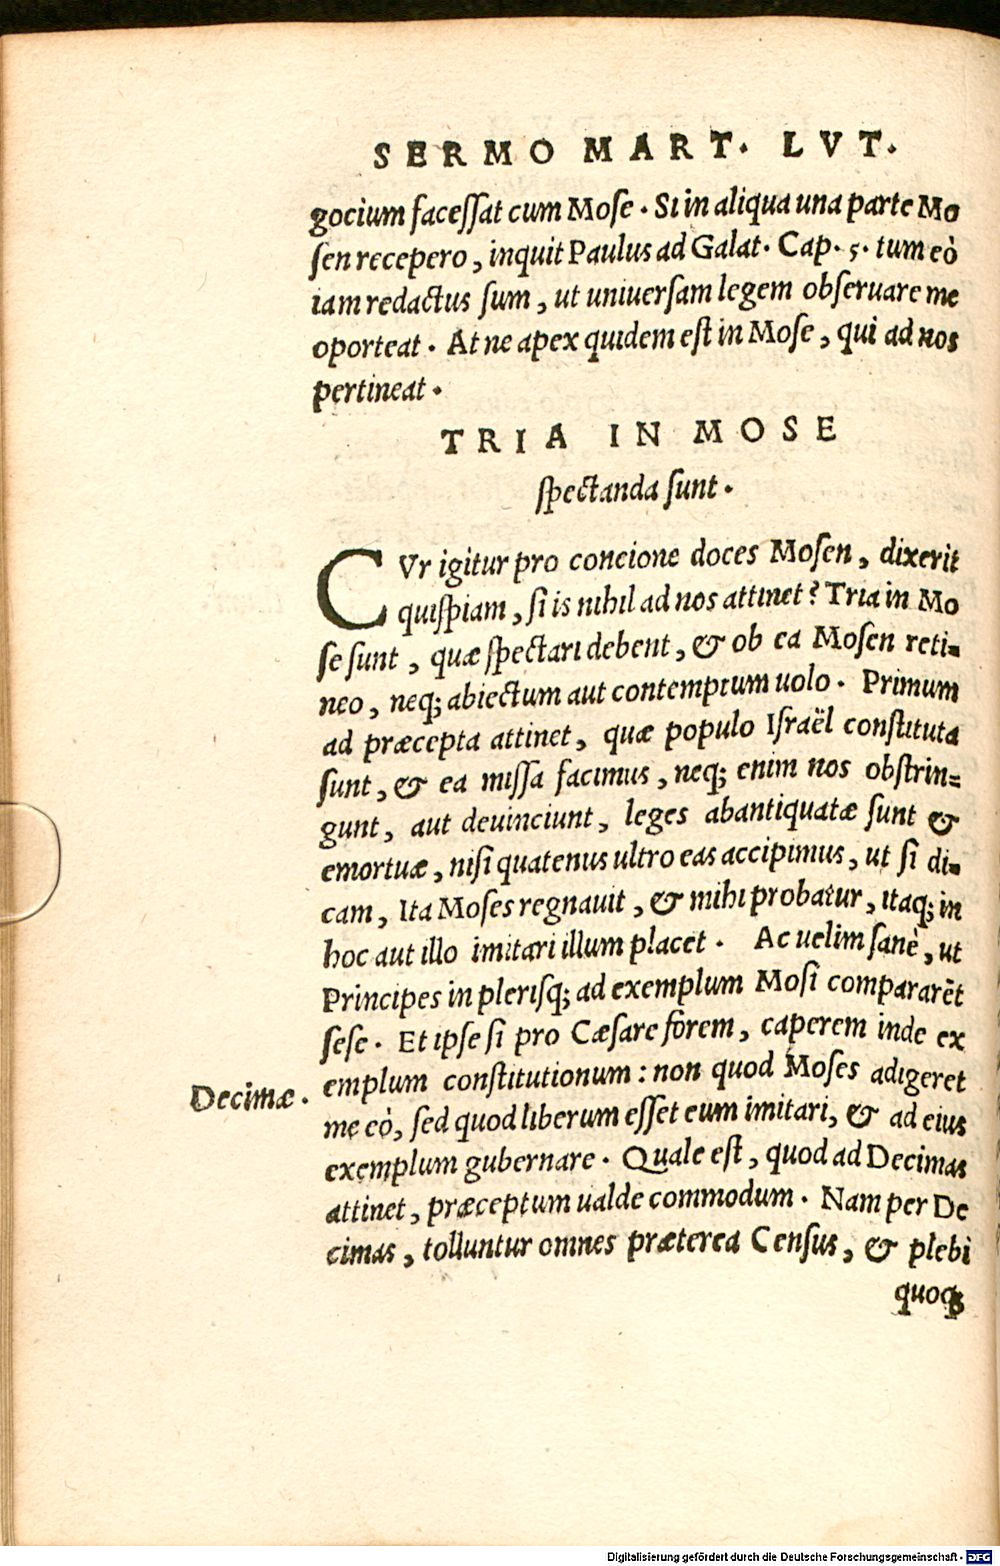 SERMO MART. LVT.
gocium facessat cum Mose. Si in aliqua una parte Mo
sen recepero, inquit Paulus ad Galat. Cap. 5. tum eò
iam redactus sum, ut uniuersam legem obseruare me
oporteat. At ne apex quidem est in Mose, qui ad nos
pertineat.
TRIA IN MOSE
spectanda sunt.
CVr igitur pro concione doces Mosen, dixerit
quispiam, si is nihil ad nos attinet? Tria in Mo
se sunt, quæ spectari debent, & ob ea Mosen reti=
neo, neq; abiectum aut contemptum uolo. Primum
ad præcepta attinet, quæ populo Israël constituta
sunt, & ea missa facimus, neq; enim nos obstrin=
gunt, aut deuinciunt, leges abantiquatæ sunt &
emortuæ, nisi quatenus ultro eas accipimus, ut si di=
cam, Ita Moses regnauit, & mihi probatur, itaq; in
hoc aut illo imitari illum placet. Ac uelim sanè, ut
Principes in plerisq; ad exemplum Mosi compararēt
sese. Et ipse si pro Cæsare forem, caperem inde ex
emplum constitutionum: non quod Moses adigeret
Decimæ.
me eò, sed quod liberum esset eum imitari, & ad eius
exemplum gubernare. Quale est, quod ad Decimas
attinet, præceptum ualde commodum. Nam per De
cimas, tolluntur omnes præterea Census, & plebi
quoq;
Digitalisierung gefördert durch die Deutsche Forschungsgemeinschaft - DFG